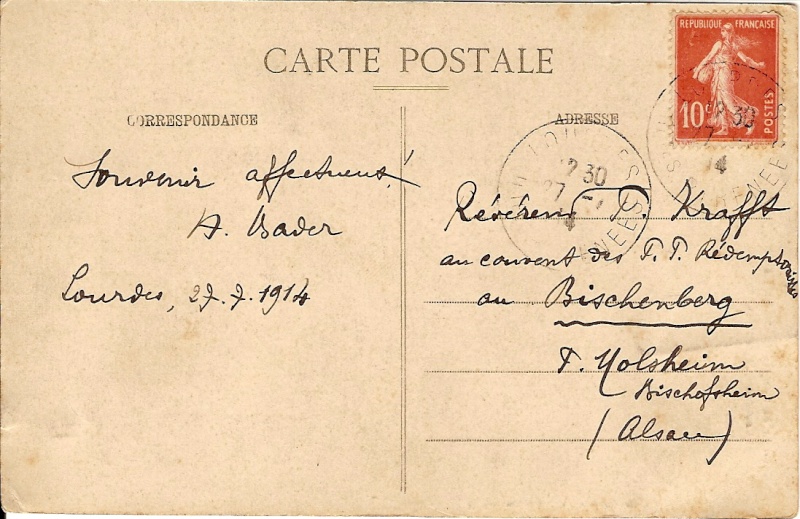 CARTE POSTALE
CORRESPONDANCE
Souvenir affectueux!
A. Bader
Lourdes, 27.7.1914
ADRESSE
REPUBLIQUE FRANÇAISE
10c
POSTES
Révérend P. Krafft
au couvent des P.P. Rédemptoristes
au Bischenberg
Molsheim
Bischofsheim
(Alsace)
12 30
27